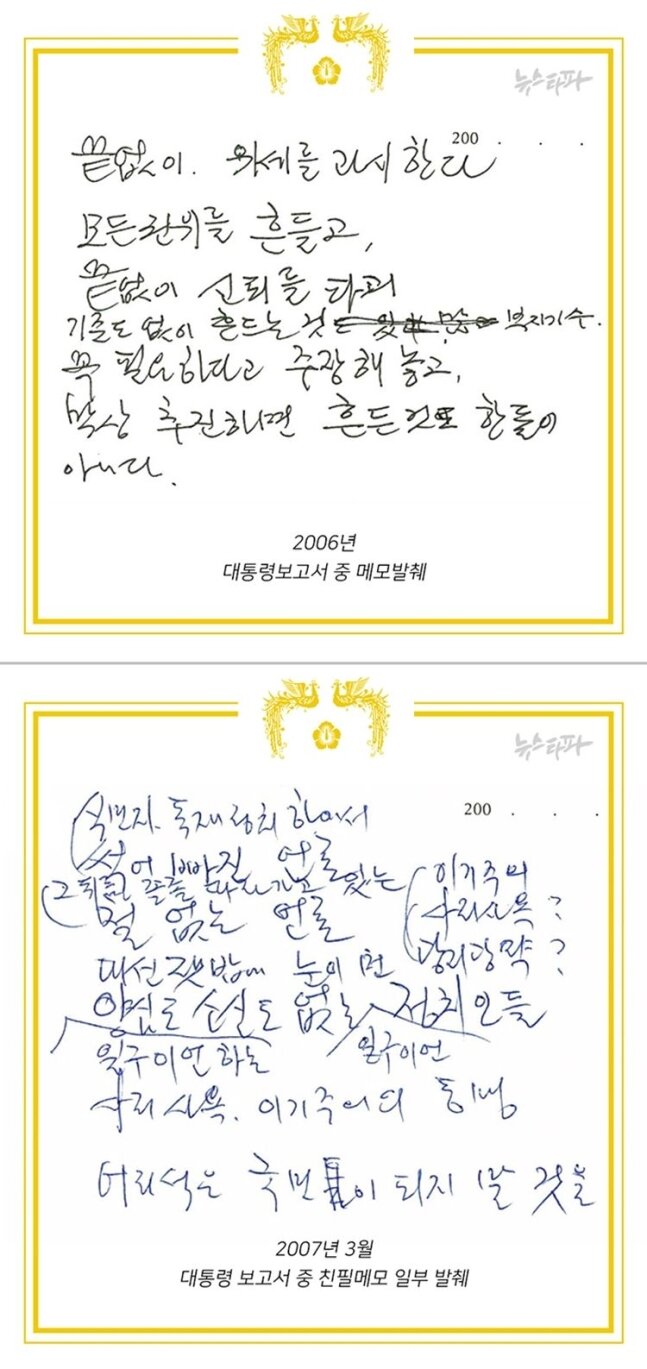 뉴스타파
200 . . .
끝없이. 위세를 과시한다
모든 권위를 흔들고,
끝없이 신뢰를 타파
기준도 없이 흔드는 것 부지기수.
꼭 필요하다고 주장해 놓고,
막상 추진하면 흔든 것도 한둘이
아니다.
2006년
대통령보고서 중 메모발췌
뉴스타파
200 . . .
식민지. 독재정치 하에서
썩어 빠진 언론
그 뒤를 졸졸 따라가고 있는
철없는 언론
이기주의
사리사욕?
당리당략?
대선 잿밥에 눈이 먼
양심도 소신도 없는 정치인들
일구이언 하는
일구이언
사리사욕. 이기주의의 동맹
어리석은 국민이 되지 말 것을
2007년 3월
대통령 보고서 중 친필메모 일부 발췌